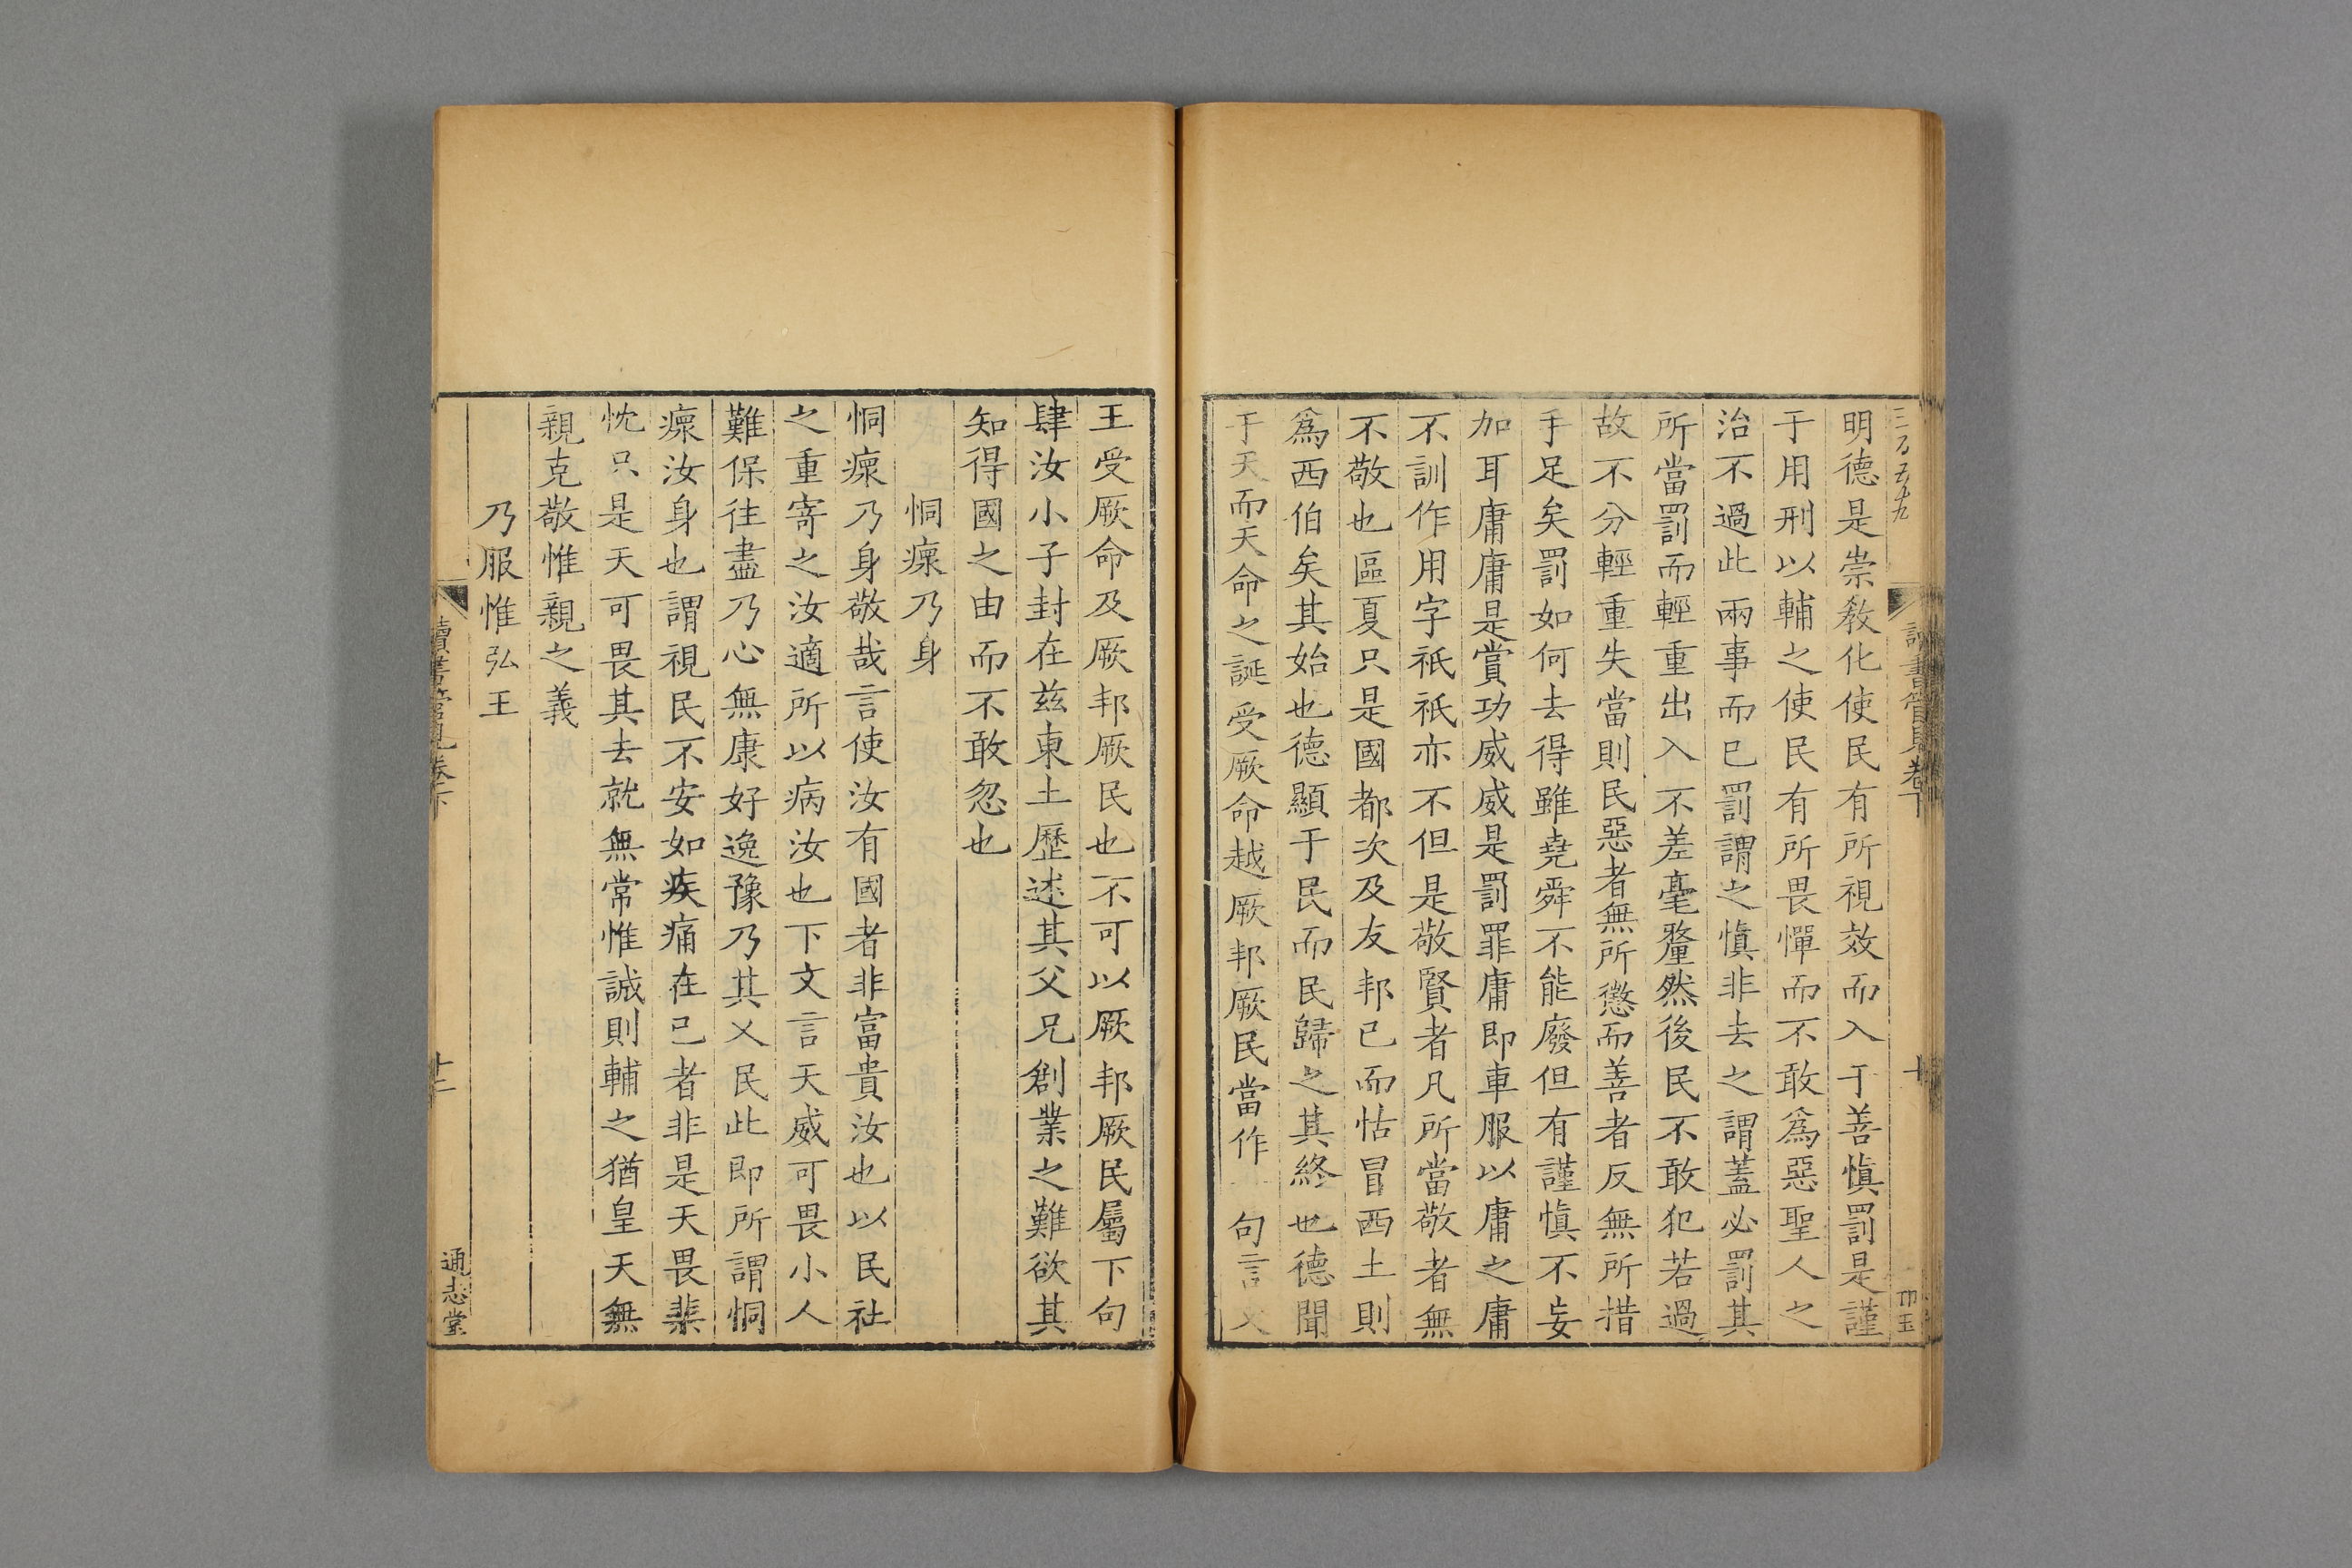 三百五十九
讀書管見卷下
十
明德是崇敎化使民有所視效而入于善愼罰是謹
于用刑以輔之使民有所畏憚而不敢爲惡聖人之
治不過此兩事而已罰謂之愼非去之謂蓋必罰其
所當罰而輕重出入不差毫釐然後民不敢犯若過
故不分輕重失當則民惡者無所懲而善者反無所措
手足矣罰如何去得雖堯舜不能廢但有謹愼不妄
加耳庸庸是賞功威威是罰罪庸即車服以庸之庸
不訓作用字祇祇亦不但是敬賢者凡所當敬者無
不敬也區夏只是國都次及友邦已而怙冒西土則
爲西伯矣其始也德顯于民而民歸之其終也德聞
于天而天命之誕受厥命越厥邦厥民當作一句言文
王受厥命及厥邦厥民也不可以厥邦厥民屬下句
肆汝小子封在茲東土歷述其父兄創業之難欲其
知得國之由而不敢忽也
恫瘝乃身
恫瘝乃身敬哉言使汝有國者非富貴汝也以民社
之重寄之汝適所以病汝也下文言天威可畏小人
難保往盡乃心無康好逸豫乃其乂民此即所謂恫
瘝汝身也謂視民不安如疾痛在已者非是天畏棐
忱只是天可畏其去就無常惟誠則輔之猶皇天無
親克敬惟親之義
乃服惟弘王
讀書管見卷下
十二
通志堂